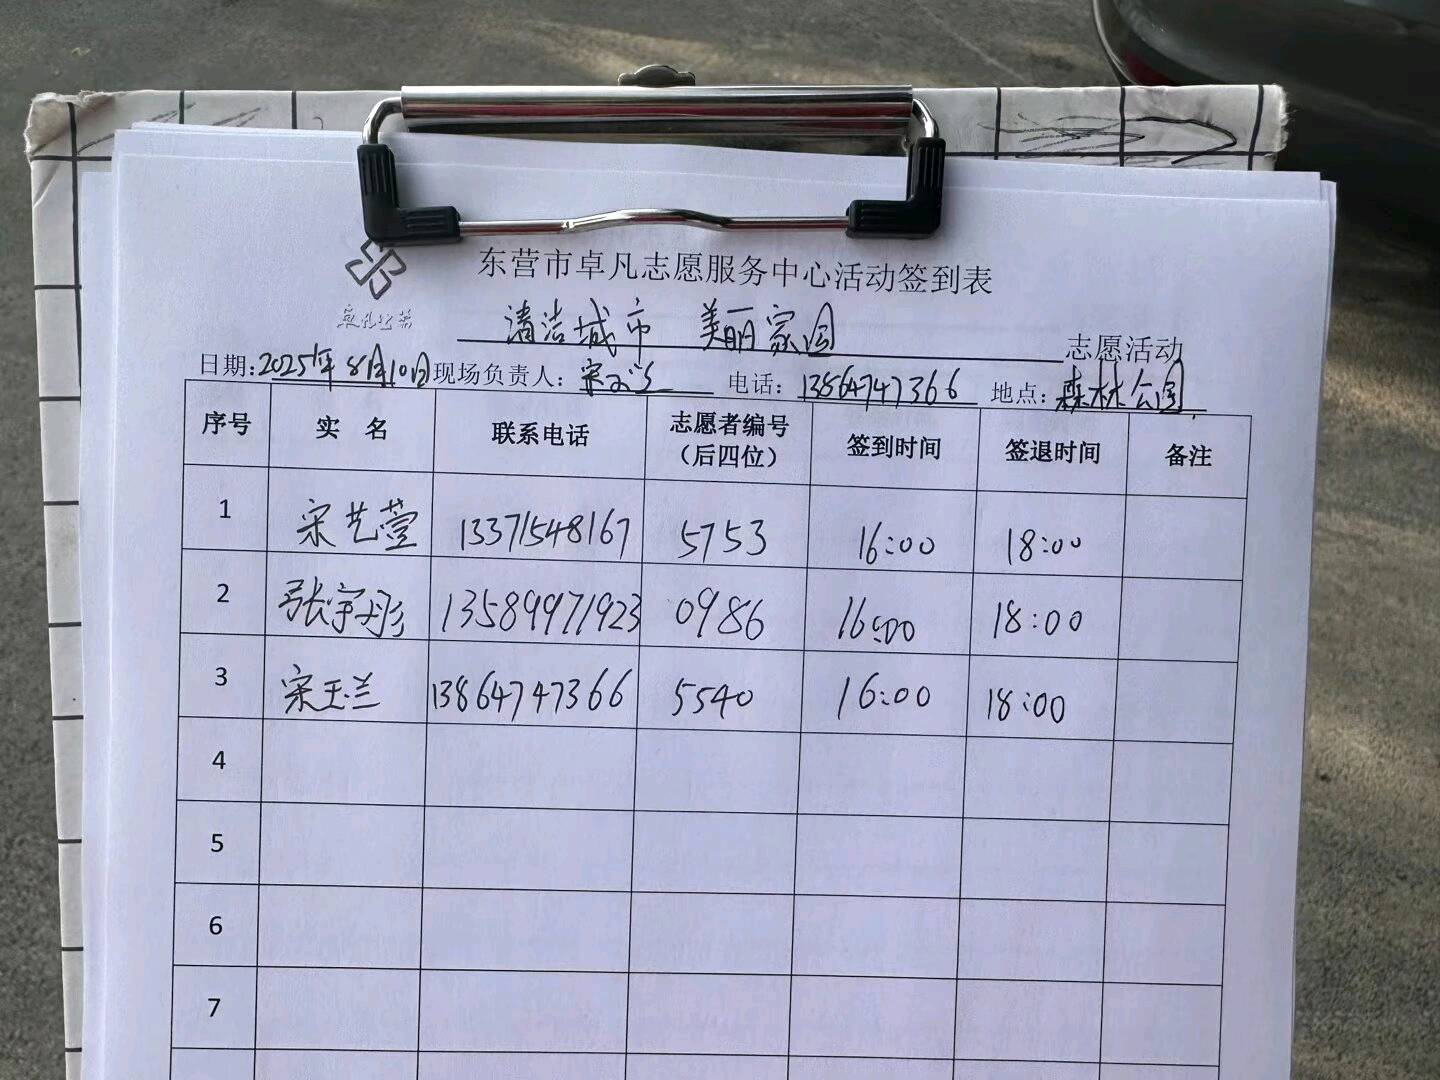 东营市卓凡志愿服务中心活动签到表
卓凡公益
清洁城市 美丽家园 志愿活动
日期:2025年8月10日 现场负责人:宋玉兰 电话:13864747366 地点:森林公园
序号 实 名 联系电话 志愿者编号(后四位) 签到时间 签退时间 备注
1 宋艺萱 13371548167 5753 16:00 18:00
2 张宇彤 13589971923 0986 16:00 18:00
3 宋玉兰 13864747366 5540 16:00 18:00
4
5
6
7